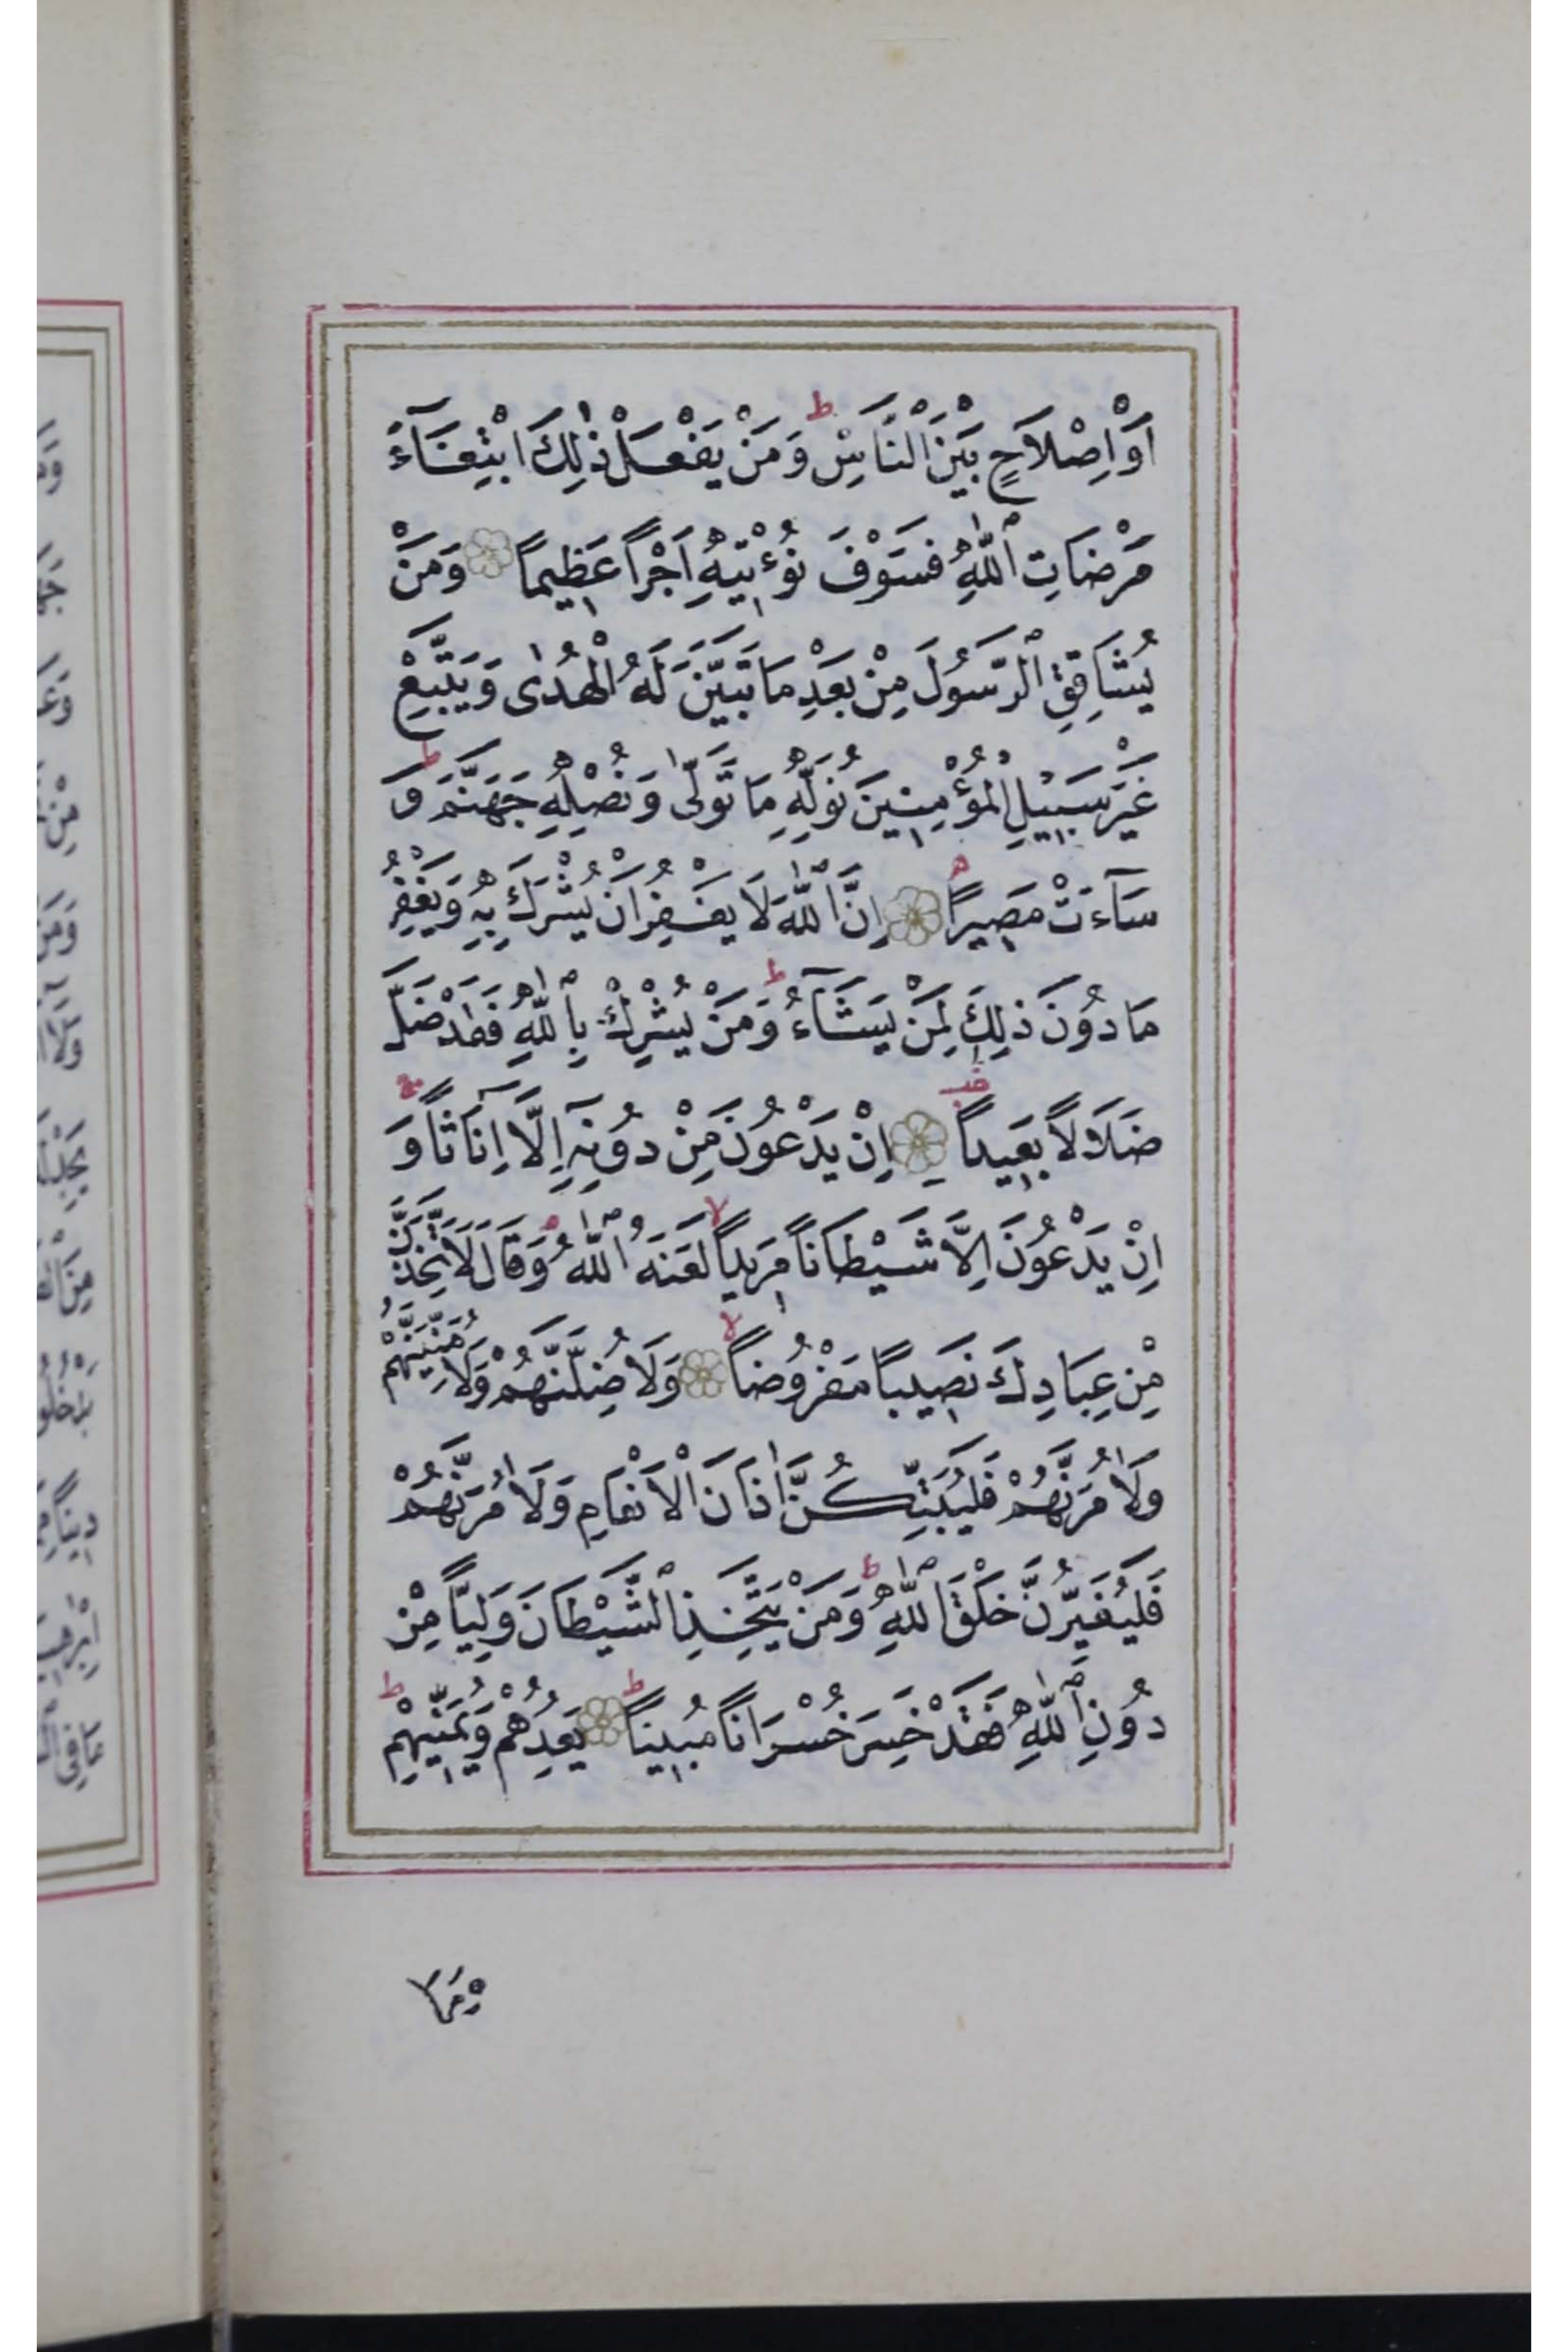 اَوْ اِصْلَاحٍ بَيْنَ النَّاسِ ط وَمَنْ يَفْعَلْ ذٰلِكَ ابْتِغَآءَ
مَرْضَاتِ اللّٰهِ فَسَوْفَ نُؤْتِيهِ اَجْرًا عَظِيمًا وَمَنْ
يُشَاقِقِ الرَّسُولَ مِنْ بَعْدِ مَا تَبَيَّنَ لَهُ الْهُدٰى وَيَتَّبِعْ
غَيْرَ سَبِيلِ الْمُؤْمِنِينَ نُوَلِّهِ مَا تَوَلّٰى وَنُصْلِهِ جَهَنَّمَ ط وَ
سَآءَتْ مَصِيرًا اِنَّ اللّٰهَ لَا يَغْفِرُ اَنْ يُشْرَكَ بِهِ وَيَغْفِرُ
مَا دُونَ ذٰلِكَ لِمَنْ يَشَآءُ ط وَمَنْ يُشْرِكْ بِاللّٰهِ فَقَدْ ضَلَّ
ضَلَالًا بَعِيدًا اِنْ يَدْعُونَ مِنْ دُونِهِٓ اِلَّا اِنَاثًا وَ
اِنْ يَدْعُونَ اِلَّا شَيْطَانًا مَرِيدًا لا لَعَنَهُ اللّٰهُ م وَقَالَ لَاَتَّخِذَنَّ
مِنْ عِبَادِكَ نَصِيبًا مَفْرُوضًا لا وَلَاُضِلَّنَّهُمْ وَلَاُمَنِّيَنَّهُمْ
وَلَاٰمُرَنَّهُمْ فَلَيُبَتِّكُنَّ اٰذَانَ الْاَنْعَامِ وَلَاٰمُرَنَّهُمْ
فَلَيُغَيِّرُنَّ خَلْقَ اللّٰهِ ط وَمَنْ يَتَّخِذِ الشَّيْطَانَ وَلِيًّا مِنْ
دُونِ اللّٰهِ فَقَدْ خَسِرَ خُسْرَانًا مُبِينًا ط يَعِدُهُمْ وَيُمَنِّيهِمْ ط
وَمَا